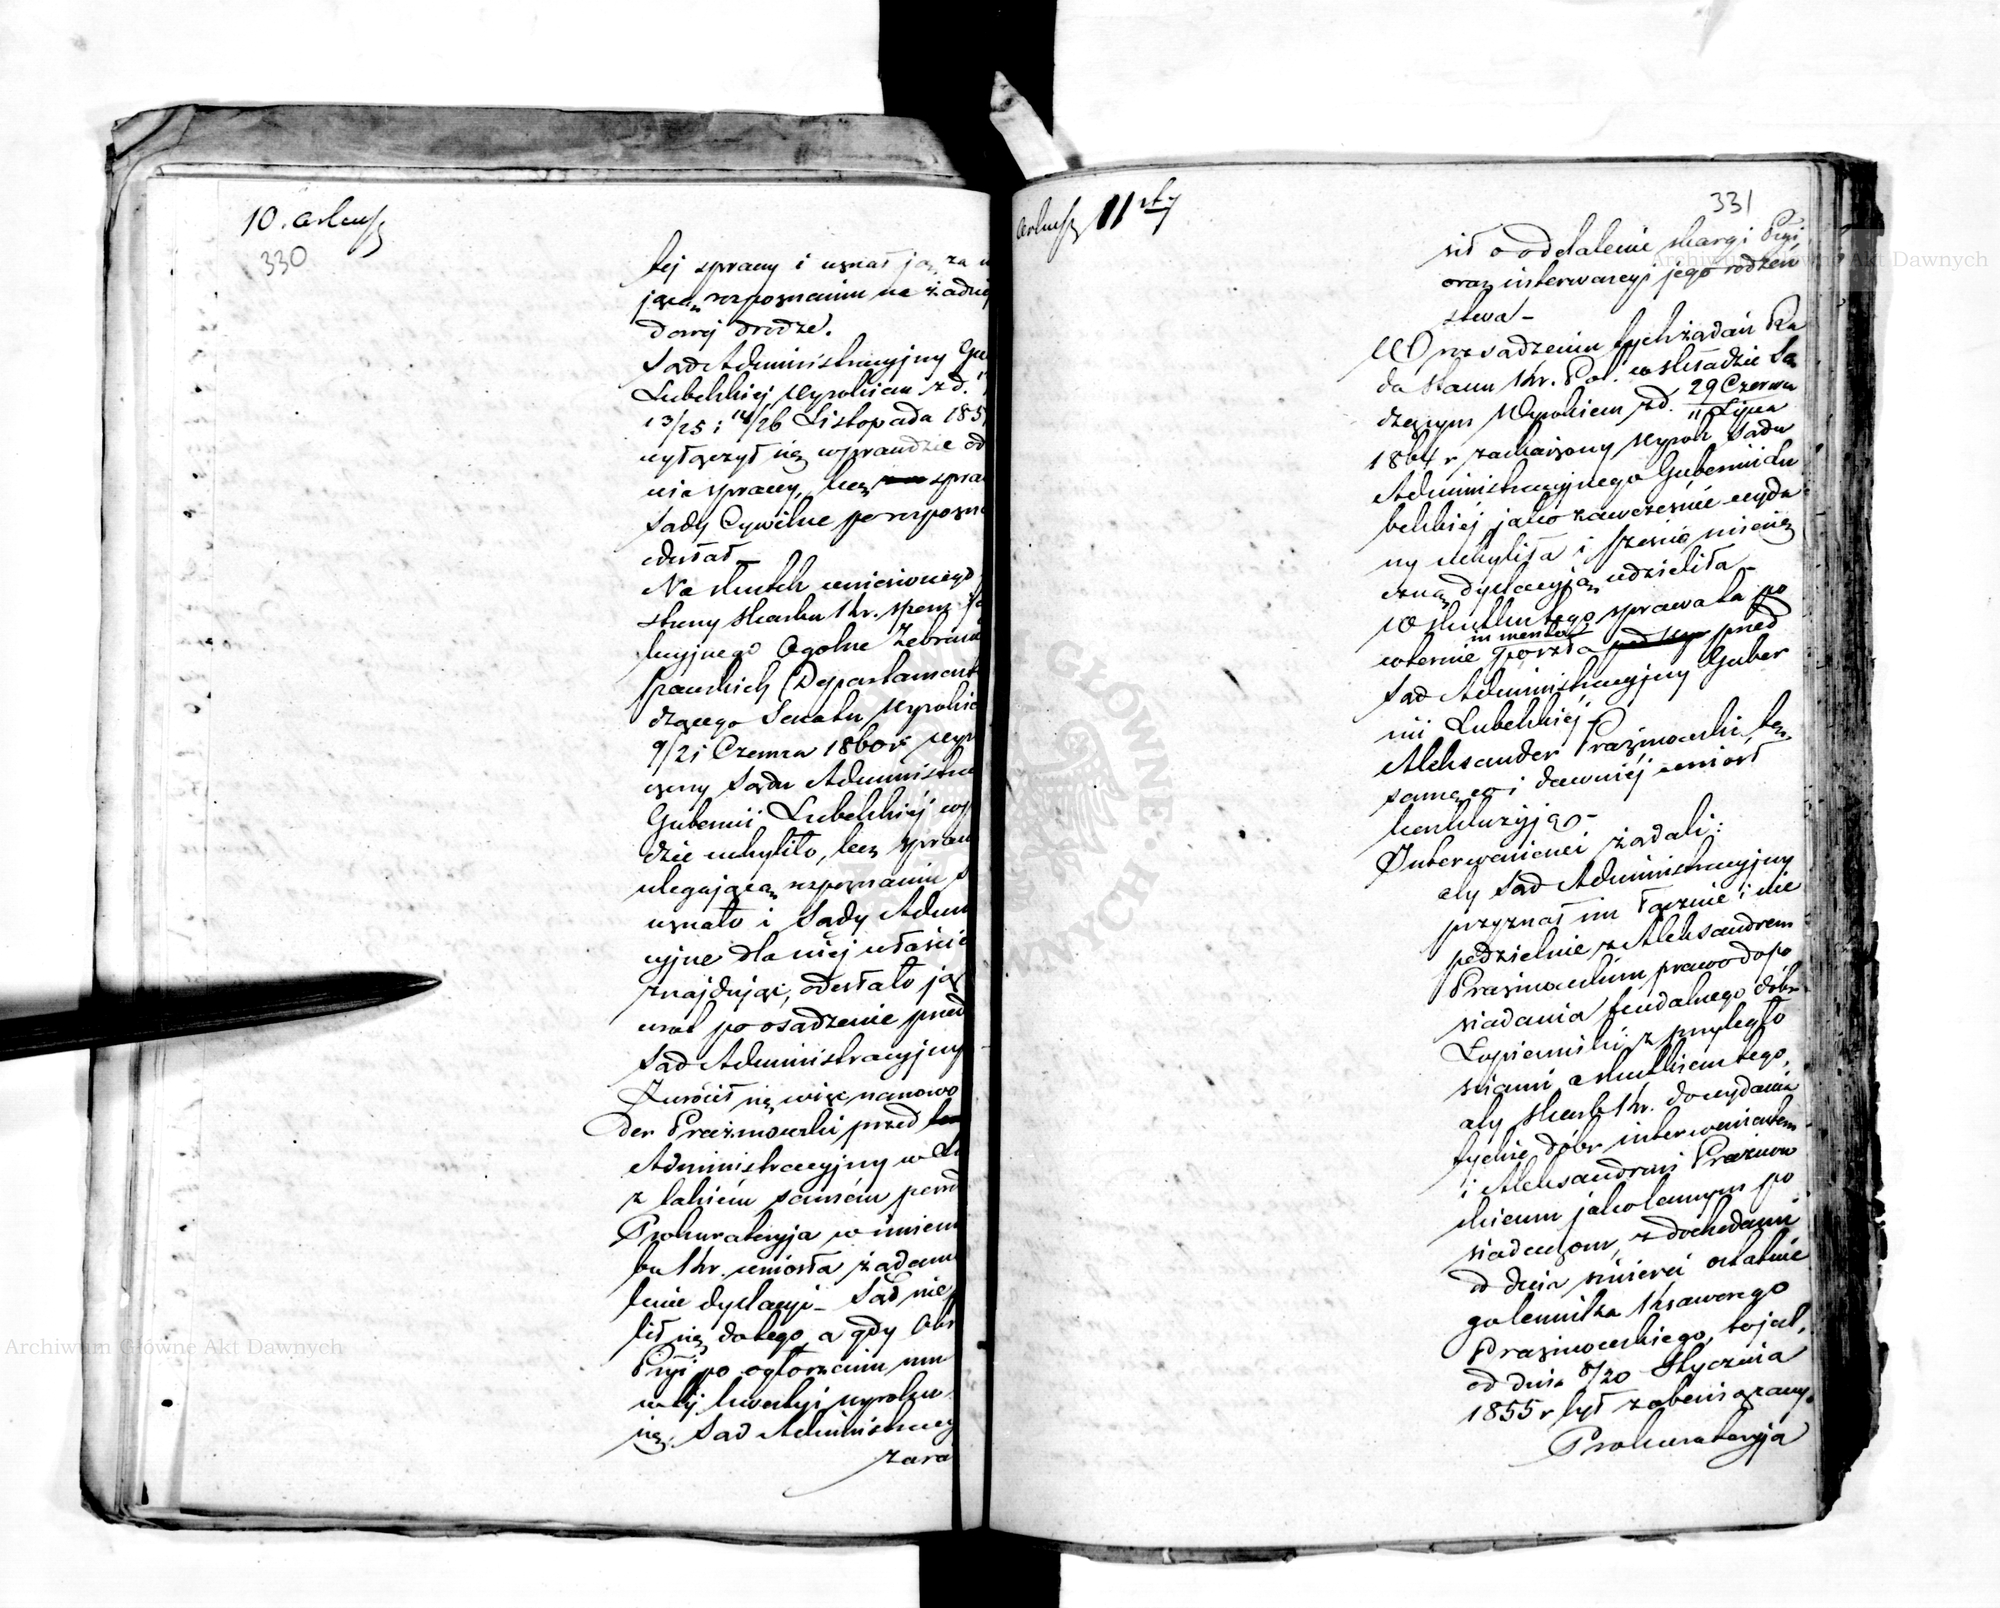 10. Arkusz
330
tej sprawy i uznał ją za u
jącą rozpoznaniu na żadnej
dowej drodze.
Sąd Administracyjny Gu
Lubelskiej Wyrokiem z d.
13/25 i 14/26 Listopada 185
wyłączył się wprawdzie od
nia sprawy, lecz spra
Sądy Cywilne po rozpozna
odesłał –
Na skutek wniesionego
strony Skarbu Kr. sporu
kcyjnego Ogólne Zebranie
szawskich Departament
dzącego Senatu wyrokie
9/21 Czerwca 1860 r. wyr
czony Sądu Administra
Gubernii Lubelskiéj wp
dzie uchyliło, lecz spraw
ulegającą rozpoznaniu S
uznało i Sądy Admi
cyjne dla niéj właści
znajdując, odesłało ją
wrot po osądzenie przed
Sąd Administracyjny
Zwrócił się więc nanowo
der Prażmowski przed
Administracyjny w Lu
z takiém samém powód
Prokuratoryja w imieni
bu Kr. wniosła żądani
lenie dylacyi – Sąd nie
lił się do tego, a gdy Obr
Prgi po ogłoszeniu mu
w téj kwestyi wyroku
się, Sąd Administracy
zara
Arkusz 11sty
331
sił o oddalenie skargi Prgi
oraz interwencyi jego rodzeń
stwa –
W rozsądzeniu tych żądań Ra
da Stanu Kr. Pol. w składzie Są
dzącym Wyrokiem z d. 29 Czerwca
11 Lipca
1864 r zaskarżony wyrok Sądu
Administracyjnego Gubernii Lu
belskiéj jako zawcześnie wyda
ny uchyliła i sześcio miesię
czną dylacyją udzieliła –
W skutku tego sprawa ta po
in merito
wtórnie poszła przed
Sąd Administracyjny Guber
nii Lubelskiéj –
Aleksander Prażmowski tęż
samą co i dawniéj wniósł
konkluzyją –
Interwenienci żądali:
aby Sąd Administracyjny
przyznał im łącznie i nie
podzielnie z Aleksandrem
Prażmowskim prawo do po
siadania feudalnego dóbr
Łopiennik z przyległo
ściami a skutkiem tego,
aby Skarb Kr. do wydania
tychże dóbr interwenientom
i Aleksandrowi Prażmow
skiemu jako lennym po
siadaczom, z dochodami
od dnia śmierci ostatnie
go lennika Ksawerego
Prażmowskiego, to jest,
od dnia 8/20 Stycznia
1855 r był zobowiązany.
Prokuratoryja
Archiwum Główne Akt Dawnych
Archiwum Główne Akt Dawnych